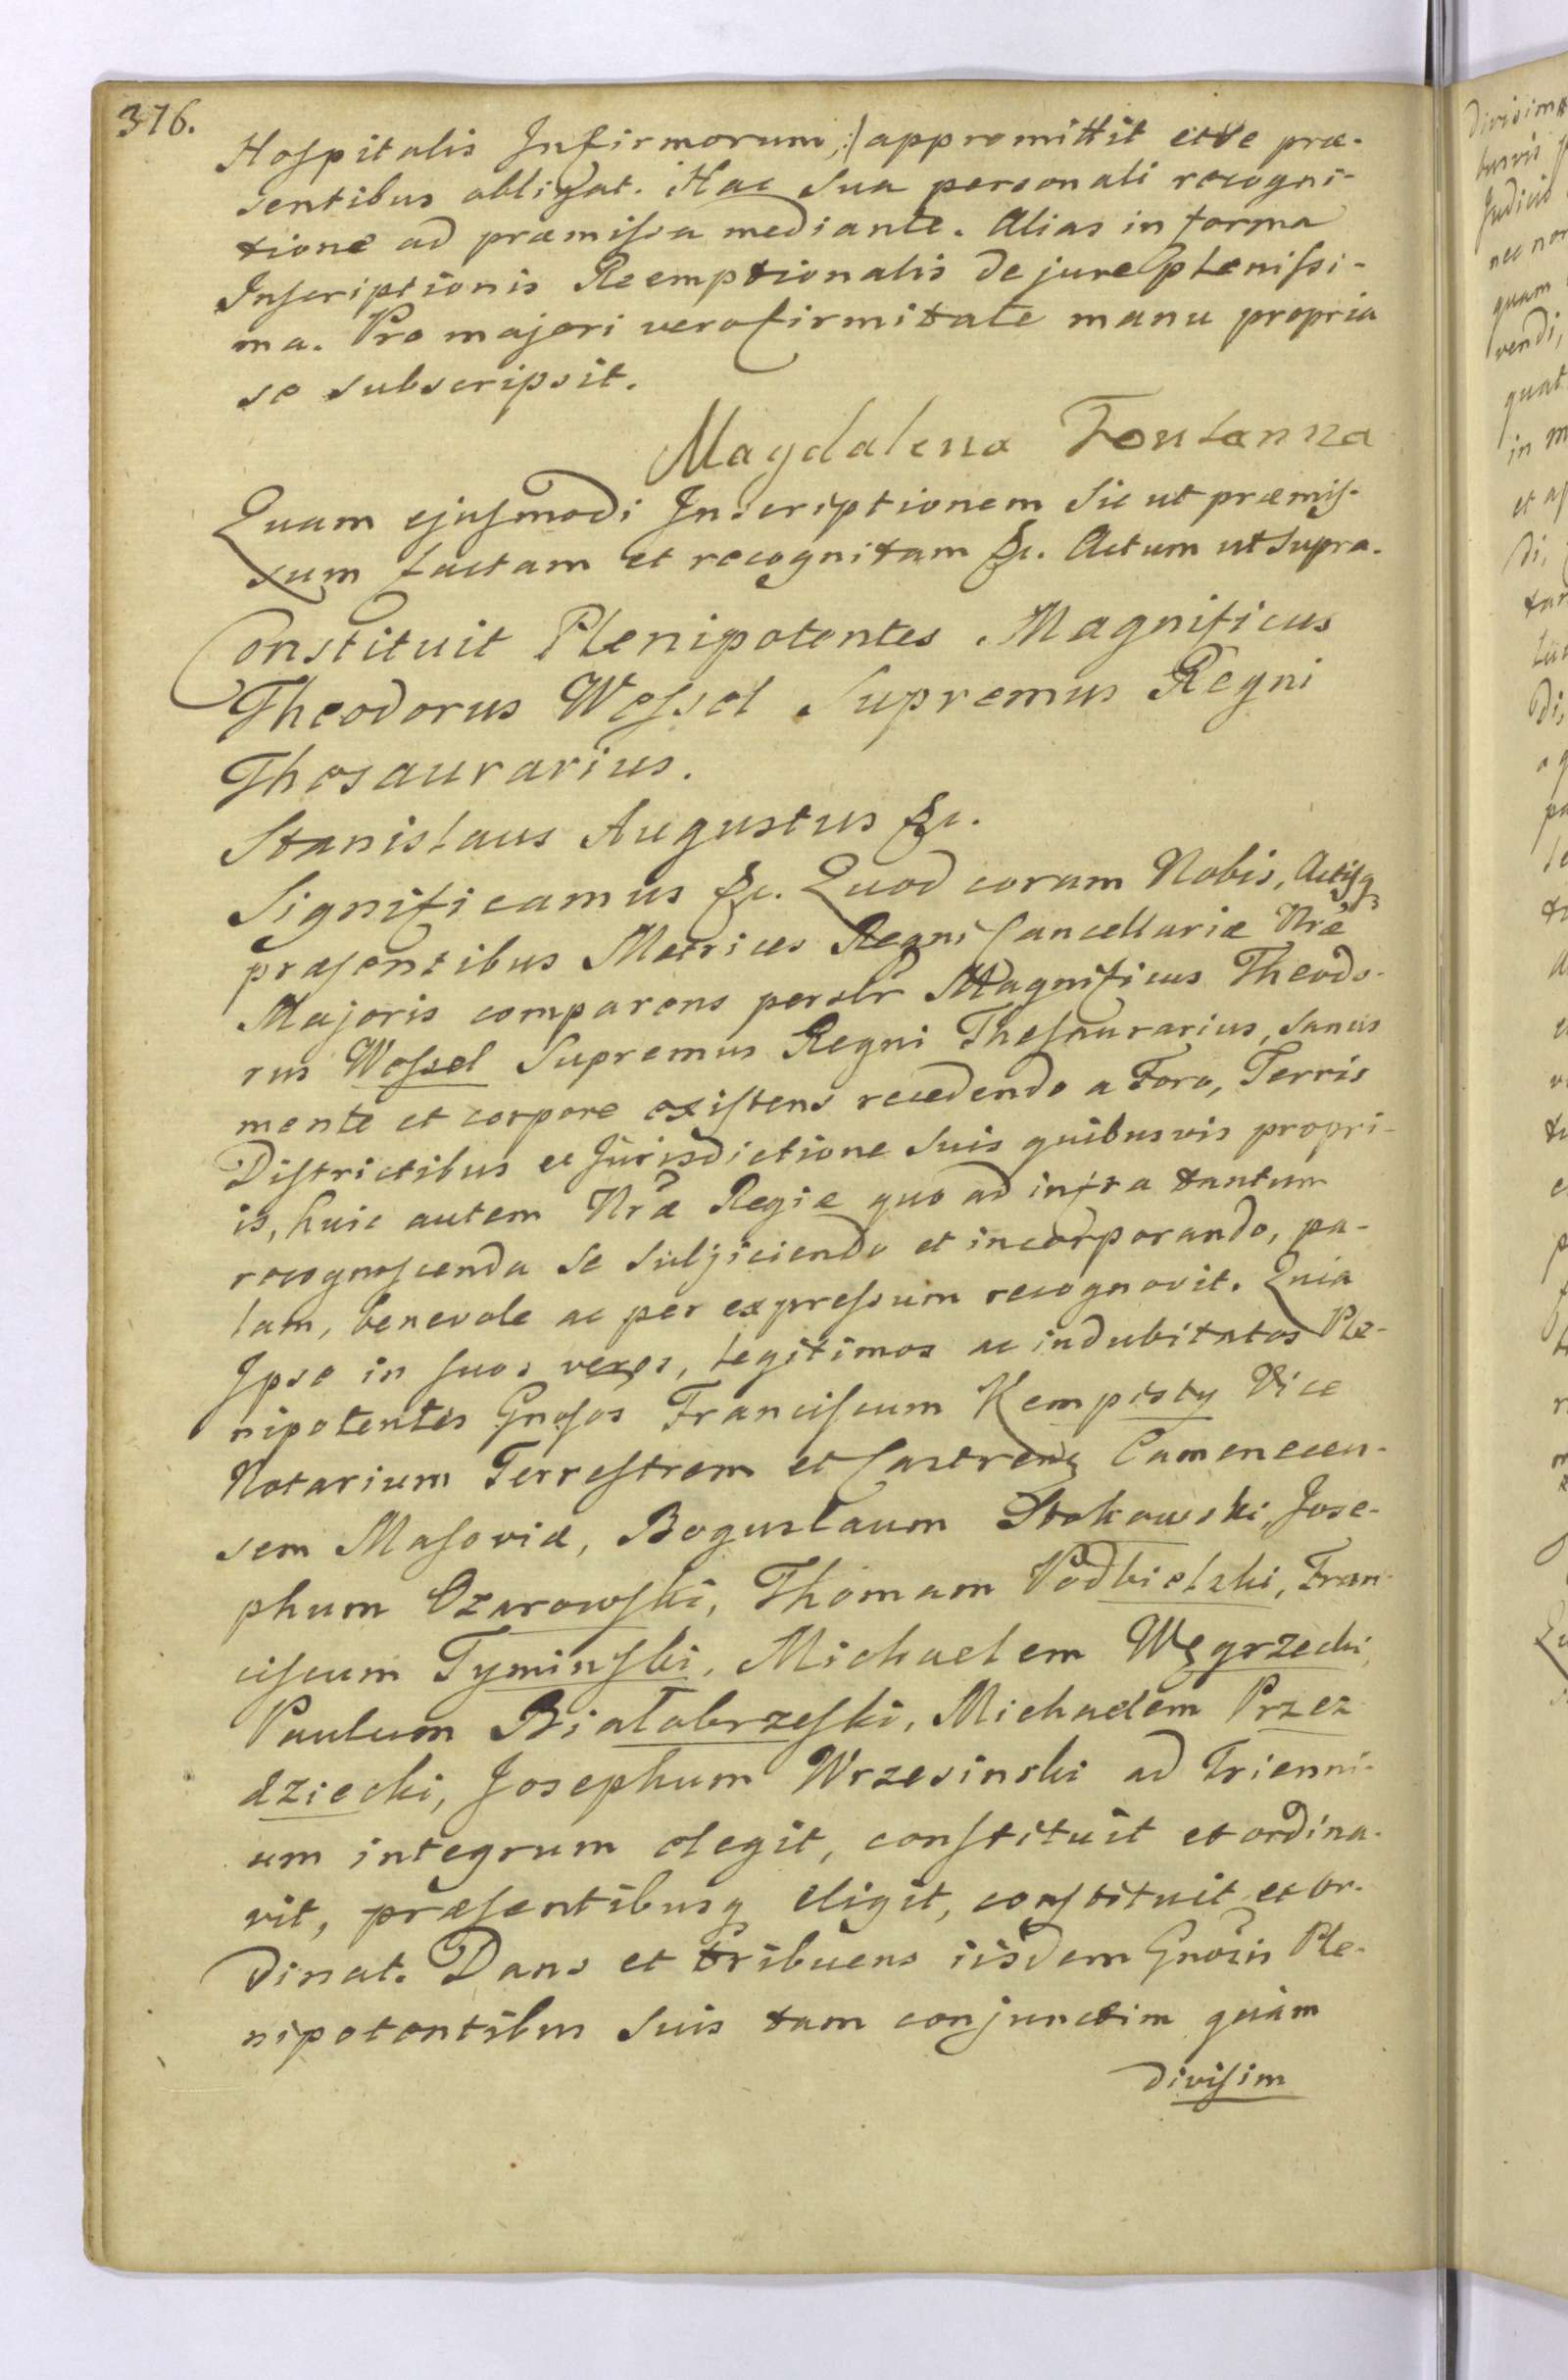 376.
Hospitalis Infirmorum,:/ appromittit et se præ-
sentibus obligat. Hac sua personali recogni-
tione ad præmissa mediante. Alias in forma
Inscriptionis Reemptionalis de jure plenissi-
ma. Pro majori vero firmitate manu propria
se subscripsit.
Magdalena Fontanna
Quam ejusmodi Inscriptionem sic ut præmis-
sum factam et recognitam &c. Actum ut supra.
Constituit Plenipotentes Magnificus
Theodorus Wessel Supremus Regni
Thesaurarius.
Stanislaus Augustus &c.
Significamus &c. Quod coram Nobis, Actisq
præsentibus Metrices Regni Cancellariæ Nræ
Majoris comparens persolr Magnificus Theodo-
rus Wessel Supremus Regni Thesaurarius, sanus
mente et corpore existens recedendo a Foro, Terris
Districtibus et Jurisdictione suis quibusvis propri-
is, huic autem Nræ Regiæ quo ad infra tantum
recognoscenda se subjiciendo et incorporando, pa-
lam, benevole ac per expressum recognovit. Quia
Ipse in suos veros, legitimos ac indubitatos Ple-
nipotentes Gnosos Franciscum Kempisty Vice
Notarium Terrestrem et Castrens Camenecen-
sem Masoviæ, Boguslaum Stokowski, Jose-
phum Ozarowski, Thomam Podbielski, Fran-
ciscum Tyminski, Michaelem Węgrzecki,
Paulum Białobrzeski, Michaelem Przez
dziecki, Josephum Wrzesinski ad Trienni-
um integrum elegit, constituit et ordina-
vit, præsentibusq eligit, constituit et or-
dinat. Dans et tribuens iisdem Gnosis Ple-
nipotentibus suis tam conjunctim quam
divisim